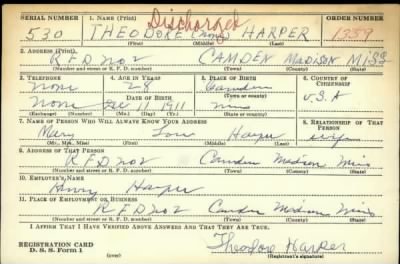 SERIAL NUMBER 1. NAME (Print) Discharged ORDER NUMBER
530 THEODORE (none) HARPER 1359
(First) (Middle) (Last)
2. ADDRESS (Print)
R F D No 2 CAMDEN MADISON MISS
(Number and street or R. F. D. number) (Town) (County) (State)
3. TELEPHONE 4. AGE IN YEARS 5. PLACE OF BIRTH 6. COUNTRY OF CITIZENSHIP
None 28 Camden
DATE OF BIRTH (Town or county)
None Dec 11 1911 Miss U.S.A
(Exchange) (Number) (Mo.) (Day) (Yr.) (State or country)
7. NAME OF PERSON WHO WILL ALWAYS KNOW YOUR ADDRESS 8. RELATIONSHIP OF THAT PERSON
Mary Harper wife
(Mr., Mrs., Miss) (First) (Middle) (Last)
9. ADDRESS OF THAT PERSON
R F D No 2 Camden Madison Miss
(Number and street or R. F. D. number) (Town) (County) (State)
10. EMPLOYER'S NAME
Henry Harper
11. PLACE OF EMPLOYMENT OR BUSINESS
R F D No 2 Camden Madison Miss
(Number and street or R. F. D. number) (Town) (County) (State)
I AFFIRM THAT I HAVE VERIFIED ABOVE ANSWERS AND THAT THEY ARE TRUE.
REGISTRATION CARD Theodore Harper
D. S. S. Form 1 (over) (Registrant's signature)